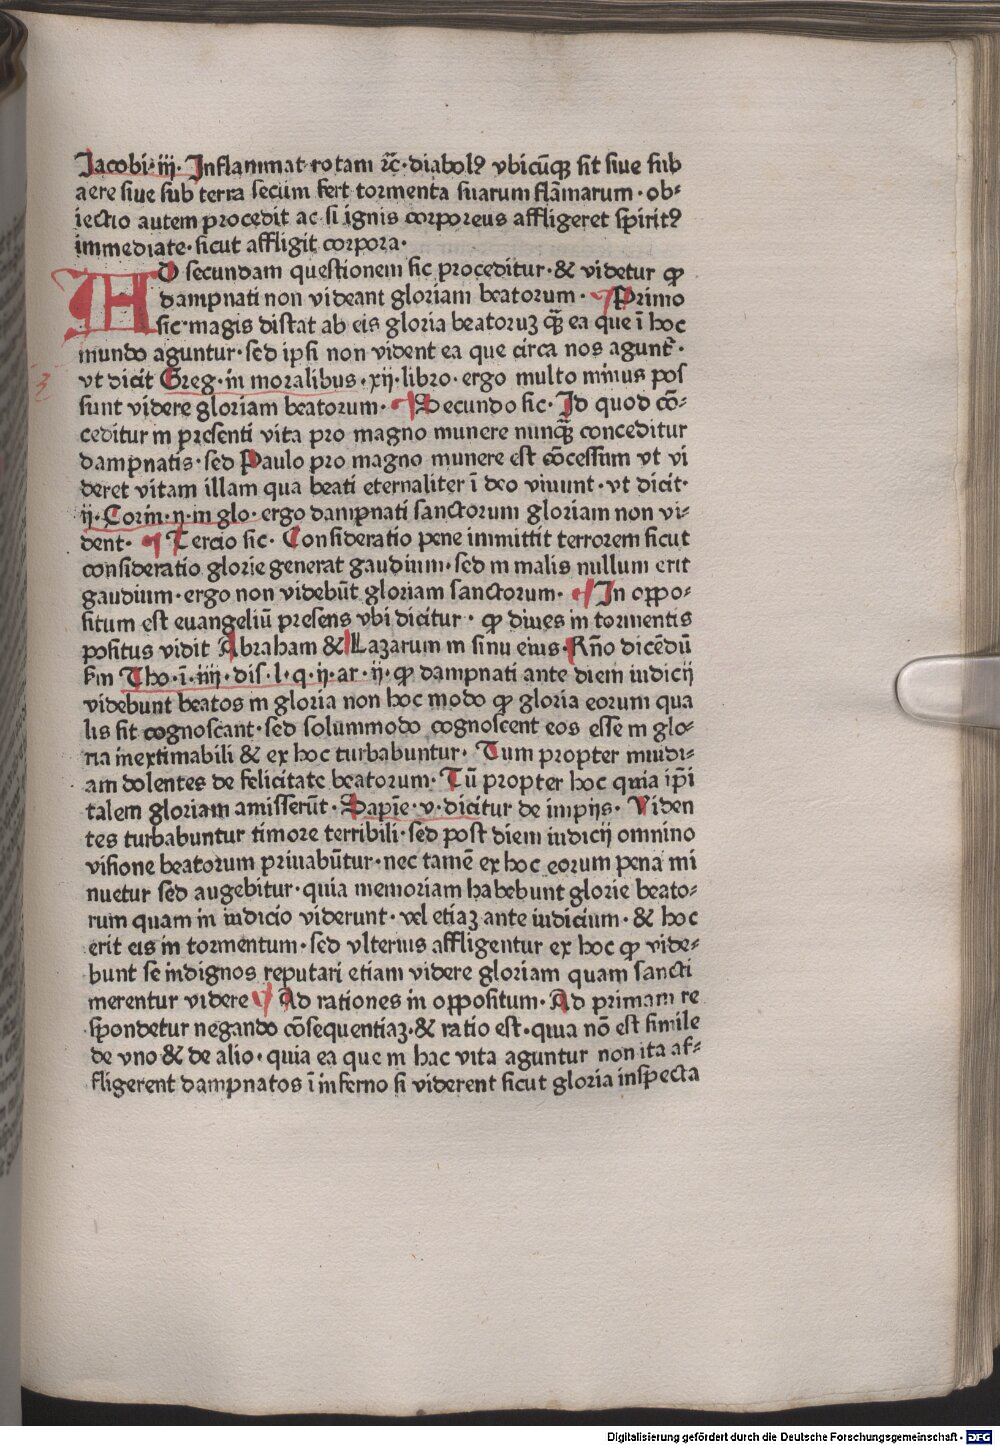 Jacobi·iij· Inflammat rotam ⁊c̄·diabolꝰ vbicūqꝫ sit siue sub
aere siue sub terra secum fert tormenta suarum flāmarum·ob⸗
iectio autem procedit ac si ignis corporeus affligeret spiritꝰ
immediate·sicut affligit corpora·
AD secundam questionem sic proceditur·& videtur ꝙ
dampnati non videant gloriam beatorum· ¶Primo
sic·magis distat ab eis gloria beatoruꝫ qꝫ̄ ea que ī hoc
mundo aguntur·sed ipsi non vident ea que circa nos agunt᷑·
vt dicit Greg·in moralibus·xij·libro·ergo multo minus pos
sunt videre gloriam beatorum· ¶Secundo sic·Id quod cō⸗
ceditur in presenti vita pro magno munere nunqꝫ̄ conceditur
dampnatis·sed Paulo pro magno munere est cōcessum vt vi
deret vitam illam qua beati eternaliter ī deo viuunt·vt dicit·
ij·Corin·ij·in glo·ergo dampnati sanctorum gloriam non vi⸗
dent· ¶Tercio sic·Consideratio pene inmittit terrorem sicut
consideratio glorie generat gaudium·sed in malis nullum erit
gaudium·ergo non videbūt gloriam sanctorum· ¶In oppo⸗
situm est euangeliū presens vbi dicitur·ꝙ diues in tormentis
positus vidit Abraham & Lazarum in sinu eius·Rn̄o dicēdū
s̄m Tho·ī·iiij·dis·l·q·ij·ar·ij·ꝙ dampnati ante diem iudicij
videbunt beatos in gloria non hoc modo ꝙ gloria eorum qua
lis sit cognoscant·sed solummodo cognoscent eos esse in glo⸗
ria inextimabili & ex hoc turbabuntur· Tum propter inuidi⸗
am dolentes de felicitate beatorum·Tū propter hoc quia ip̄i
talem gloriam amisserūt·Sapiē·v·dicitur de impijs· Viden
tes turbabuntur timore terribili·sed post diem iudicij omnino
visione beatorum priuabūtur·nec tamē ex hoc eorum pena mi
nuetur sed augebitur·quia memoriam habebunt glorie beato⸗
rum quam in iudicio viderunt·vel etiaꝫ ante iudicium·& hoc
erit eis in tormentum·sed vlterius affligentur ex hoc ꝙ vide⸗
bunt se indignos reputari etiam videre gloriam quam sancti
merentur videre ¶Ad rationes in oppositum·Ad primam re
spondetur negando cōsequentiaꝫ·& ratio est·quia nō est simile
de vno & de alio·quia ea que in hac vita aguntur non ita af⸗
fligerent dampnatos ī inferno si viderent sicut gloria inspecta
Digitalisierung gefördert durch die Deutsche Forschungsgemeinschaft - DFG